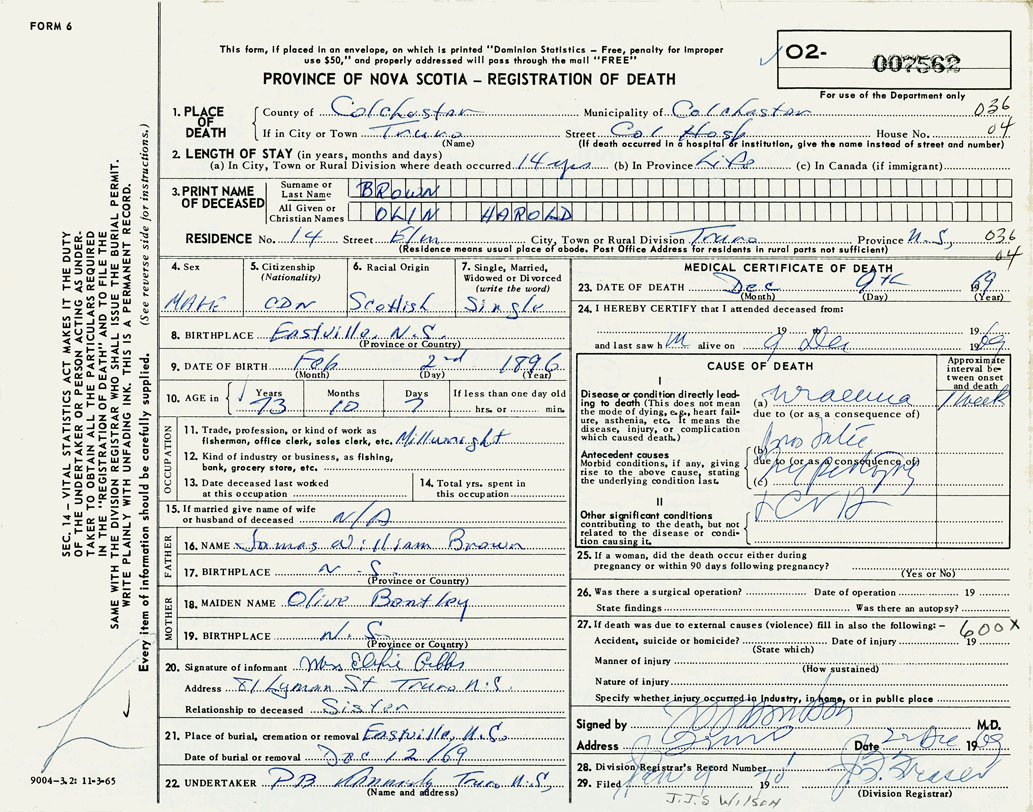 FORM 6
This form, if placed in an envelope, on which is printed "Dominion Statistics – Free, penalty for improper
use $50," and properly addressed will pass through the mail "FREE"
PROVINCE OF NOVA SCOTIA – REGISTRATION OF DEATH
02- 007562
For use of the Department only
SEC. 14 – VITAL STATISTICS ACT MAKES IT THE DUTY
OF THE UNDERTAKER OR PERSON ACTING AS UNDER-
TAKER TO OBTAIN ALL THE PARTICULARS REQUIRED
IN THE "REGISTRATION OF DEATH" AND TO FILE THE
SAME WITH THE DIVISION REGISTRAR WHO SHALL ISSUE THE BURIAL PERMIT.
WRITE PLAINLY WITH UNFADING INK. THIS IS A PERMANENT RECORD.
Every item of information should be carefully supplied. (See reverse side for instructions.)
1. PLACE OF DEATH
County of Colchester Municipality of Colchester 036
If in City or Town Truro Street Col Hosp House No. 04
(Name) (If death occurred in a hospital or institution, give the name instead of street and number)
2. LENGTH OF STAY (in years, months and days)
(a) In City, Town or Rural Division where death occurred 14 yrs (b) In Province Life (c) In Canada (if immigrant)
3. PRINT NAME OF DECEASED
Surname or Last Name BROWN
All Given or Christian Names OLIN HAROLD
RESIDENCE No. 14 Street Elm City, Town or Rural Division Truro Province N.S. 036
(Residence means usual place of abode. Post Office Address for residents in rural parts not sufficient) 04
4. Sex MALE
5. Citizenship (Nationality) CDN
6. Racial Origin Scottish
7. Single, Married, Widowed or Divorced (write the word) Single
8. BIRTHPLACE Eastville, N.S.
(Province or Country)
9. DATE OF BIRTH Feb 2nd 1896
(Month) (Day) (Year)
10. AGE in Years Months Days If less than one day old
73 10 7 hrs. or min.
OCCUPATION
11. Trade, profession, or kind of work as
fisherman, office clerk, sales clerk, etc. Millwright
12. Kind of industry or business, as fishing,
bank, grocery store, etc.
13. Date deceased last worked
at this occupation
14. Total yrs. spent in
this occupation
15. If married give name of wife
or husband of deceased N/A
FATHER
16. NAME James William Brown
17. BIRTHPLACE N.S.
(Province or Country)
MOTHER
18. MAIDEN NAME Olive Bentley
19. BIRTHPLACE N.S.
(Province or Country)
20. Signature of informant Mrs Gibbs
Address 81 Lyman St Truro N.S.
Relationship to deceased Sister
21. Place of burial, cremation or removal Eastville, N.S.
Date of burial or removal Dec 12/69
22. UNDERTAKER Truro N.S.
(Name and address)
9004-3.2: 11-3-65
MEDICAL CERTIFICATE OF DEATH
23. DATE OF DEATH Dec 9th 1969
(Month) (Day) (Year)
24. I HEREBY CERTIFY that I attended deceased from:
19 to 19
and last saw h m alive on 9 Dec 1969
CAUSE OF DEATH
Approximate interval between onset and death
I
Disease or condition directly lead-
ing to death (This does not mean
the mode of dying, e.g., heart fail-
ure, asthenia, etc. It means the
disease, injury, or complication
which caused death.)
(a) uraemia 1 week
due to (or as a consequence of)
Antecedent causes
Morbid conditions, if any, giving
rise to the above cause, stating
the underlying condition last.
(b) prostatic
due to (or as a consequence of)
(c) hypertrophy
II
Other significant conditions
contributing to the death, but not
related to the disease or condi-
tion causing it.
25. If a woman, did the death occur either during
pregnancy or within 90 days following pregnancy?
(Yes or No)
26. Was there a surgical operation? Date of operation 19
State findings Was there an autopsy?
27. If death was due to external causes (violence) fill in also the following: – 600X
Accident, suicide or homicide? Date of injury 19
(State which)
Manner of injury
(How sustained)
Nature of injury
Specify whether injury occurred in Industry, in home, or in public place
Signed by M.D.
Address Truro Date 22 Dec 1969
28. Division Registrar's Record Number
29. Filed Jan 9 1970
(Division Registrar)
J.J.S WILSON